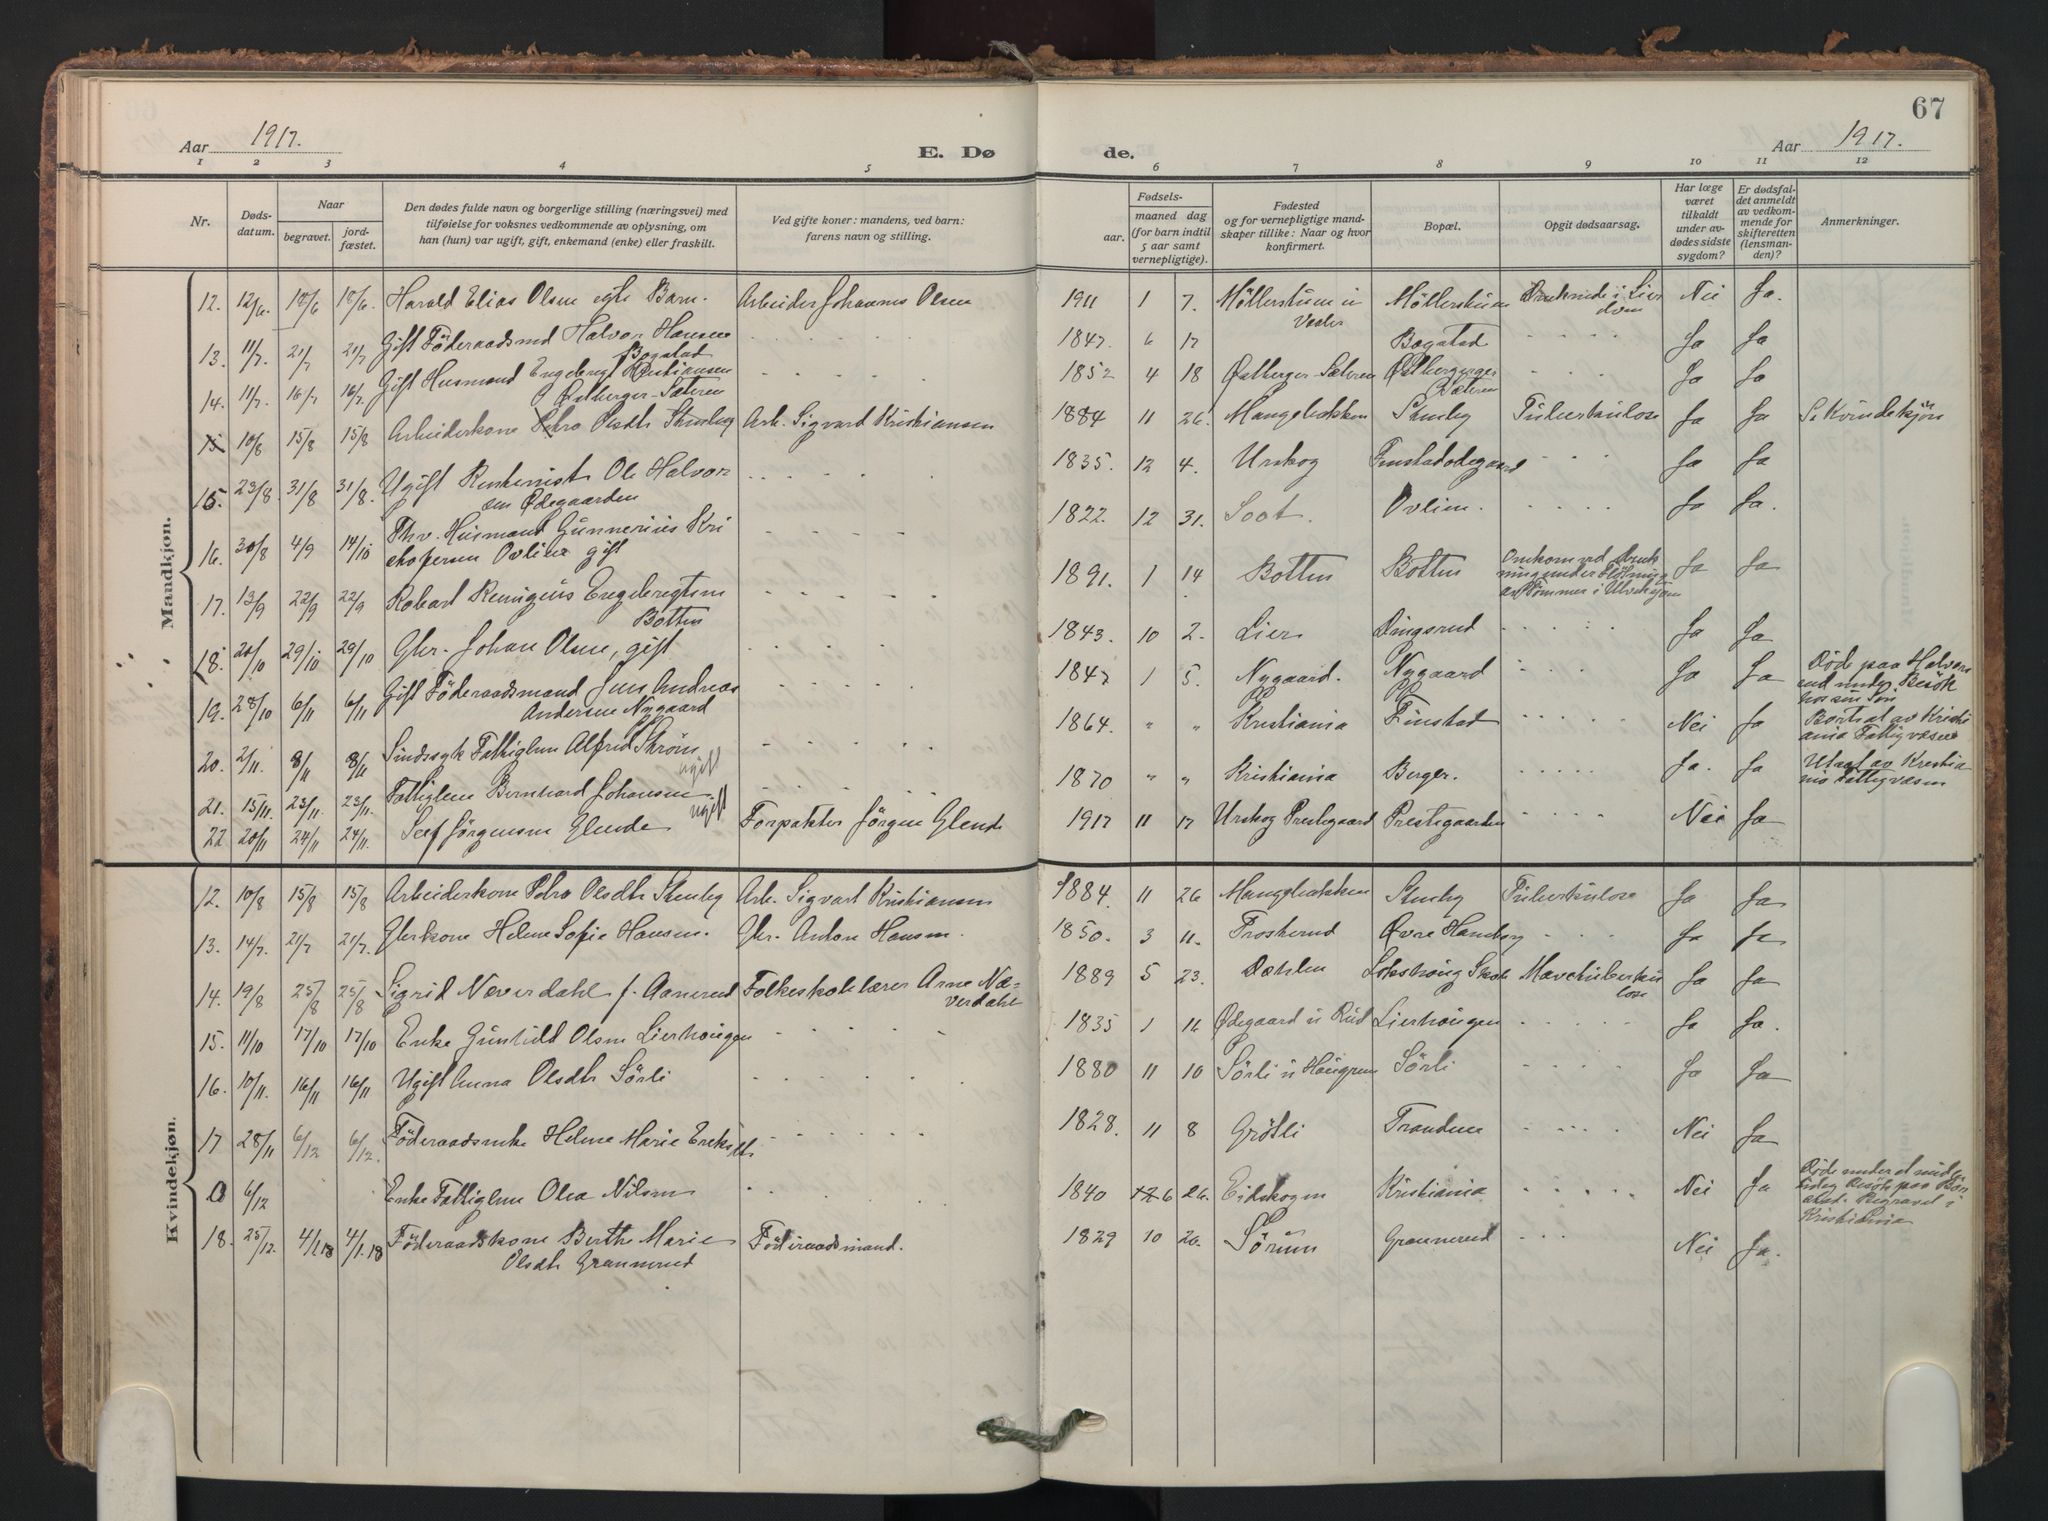 67
Aar 1917.
E. Dø de.
Aar 1917.
1 2 3 4 5 6 7 8 9 10 11 12
Nr.
Døds-
datum.
Naar
begravet.
jord-
fæstet.
Den dødes fulde navn og borgerlige stilling (næringsvei) med
tilføielse for voksnes vedkommende av oplysning, om
han (hun) var ugift, gift, enkemand (enke) eller fraskilt.
Ved gifte koner: mandens, ved barn:
farens navn og stilling.
Fødsels-
aar.
maaned dag
(for barn indtil
5 aar samt
vernepligtige).
Fødested
og for vernepligtige mand-
skaper tillike: Naar og hvor
konfirmert.
Bopæl.
Opgit dødsaarsag.
Har læge
været
tilkaldt
under av-
dødes sidste
sygdom?
Er dødsfal-
det anmeldt
av vedkom-
mende for
skifteretten
(lensman-
den)?
Anmerkninger.
Mandkjøn.
12. 12/6. 18/6 18/6. Harald Elias Olsen egte Barn. Arbeider Johannes Olsen 1911 1 7. Nei Ja.
13. 11/7. 21/7 21/7 Gift Föderaadsmd Halvor Hansen
Bogstad 1847. 6 17 Bogstad Ja Ja
14. 11/7. 16/7 16/7. Gift Husmand Engebregt Kristiansen
Østberger-Sæteren 1852 4 18 Østberger-Sæteren Østberger
Sæteren Ja Ja
15 10/8 15/8 15/8. Arbeiderkone Petra Olsdtr Stenby Arb. Sigvard Kristiansen 1884 11 26. Mangbakken Stenby Tuberkulose Ja Ja S. Kvindekjön
15. 23/8. 31/8 31/8. Ugift Ole Halvor
sen Ødegaarden 1835. 12 4. Urskog Finstadødegaard Ja Ja
16. 30/8 4/9 14/10 Fhv. Husmand Gunnerius Kri
stofersen Ovlien gift 1822. 12 31. Soot. Ovlien. Ja Ja.
17. 13/9 22/9 22/9 Robert Remigius Engebregtsen
Botten 1891. 1 14 Botten Botten Omkom ved druk
ning under Flötning
av Tömmer i Ja Ja
18. 20/10 29/10 29/10 Gbr. Johan Olsen, gift 1843. 10 2. Lier Dingsrud Ja Ja
19. 28/10 6/11 6/11 Gift Föderaadsmand Jens Andreas
Andersen Nygaard 1847 1 5. Nygaard. Nygaard Ja Ja Döde paa Halvors
rud under Besök
hos sin Sön
20. 2/11. 8/11 8/11 Sindssyk Fattiglem Alfred Ström
ugift 1864. " " Kristiania Finstad Nei Ja Bortsat av Kristi
ania Fattigvæsen
21. 15/11. 23/11 23/11. Fattiglem Bernhard Johansen
ugift 1870 " " Kristiania Berger. Ja. Ja Utsat av Kristia
nia Fattigvæsen
22 20/11 24/11 24/11. Leif Jörgensen Glende Forpakter Jörgen Glende 1917 11 17 Urskog Prestegaard Prestegaarden Nei Ja
Kvindekjøn.
12. 10/8 15/8 15/8 Arbeiderkone Petra Olsdtr Stenby Arb. Sigvart Kristiansen 1884. 11 26 Mangbakken Stenby Tuberkulose Ja Ja
13. 14/7. 21/7 21/7. Gbrkone Helene Sofie Hansen. Gbr. Anton Hansen. 1850. 3 11. Froskerud Øvre Hamborg Ja Ja
14. 19/8 25/8 25/8 Sigrid Næverdahl f. Aanerud Folkeskolelærer Arne Næ-
verdahl 1889 5 23. Dæhlen Lokshoug Skole Mavetuberku
lose Ja Ja
15. 11/10 17/10 17/10 Enke Gunhild Olsen Lierhougen 1835 1 16 Ødegaard u Rud Lierhougen Ja Ja.
16. 10/11. 16/11 16/11 Ugift Anna Olsdtr Sörli 1880 11 10 Sörli u Haugrem Sörli Ja Ja
17 28/11 6/12 6/12. Föderaadsenke Helene Marie Eriksdtr 1828. 11 8 Grötli Tranden Nei Ja
0 6/12 Enke Fattiglem Olea Nilsen 1840 12 6 26. Eidskogen Kristiania Nei Ja Döde under et mid
Besök paa
Begravet i
Kristiania
18. 25/12. 4/1 18 4/1.18 Föderaadskone Berthe Marie
Olsdtr Grannerud Föderaadsmand. 1829 10 20. Sörum Grannerud Nei Ja.